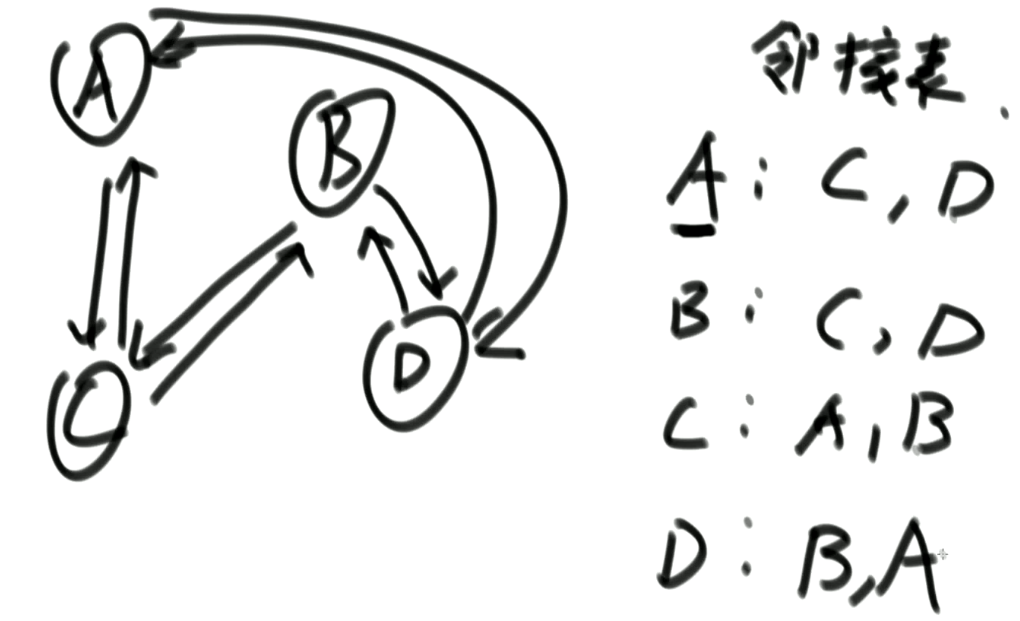 A
B
C
D
邻接表.
A: C, D
B: C, D
C: A, B
D: B, A